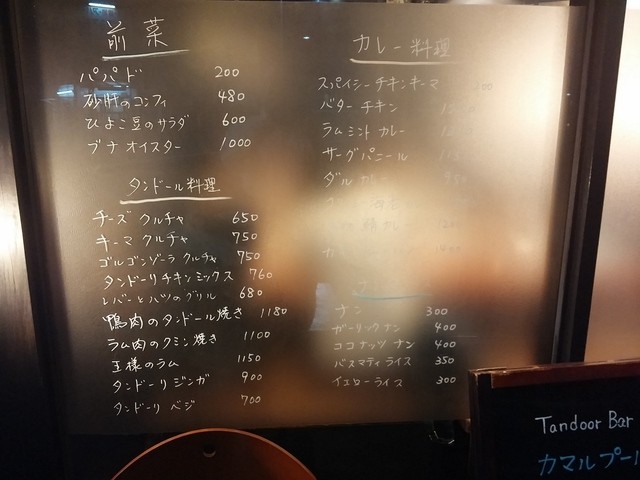 前菜
パパド 200
砂肝のコンフィ 480
ひよこ豆のサラダ 600
ブナ オイスター 1000
タンドール料理
チーズ クルチャ 650
キーマ クルチャ 750
ゴルゴンゾーラ クルチャ 750
タンドーリチキンミックス 760
レバーとハツのグリル 680
鴨肉のタンドール焼き 1180
ラム肉のクミン焼き 1100
王様のラム 1150
タンドーリ ジンガ 900
タンドーリ ベジ 700
カレー料理
スパイシーチキンキーマ
バターチキン
ラムミントカレー
サーグパニール
ダルカレー
ナン 300
ガーリックナン 400
ココナッツ ナン 400
バスマティライス 350
イエローライス 300
Tandoor Bar
カマルプール